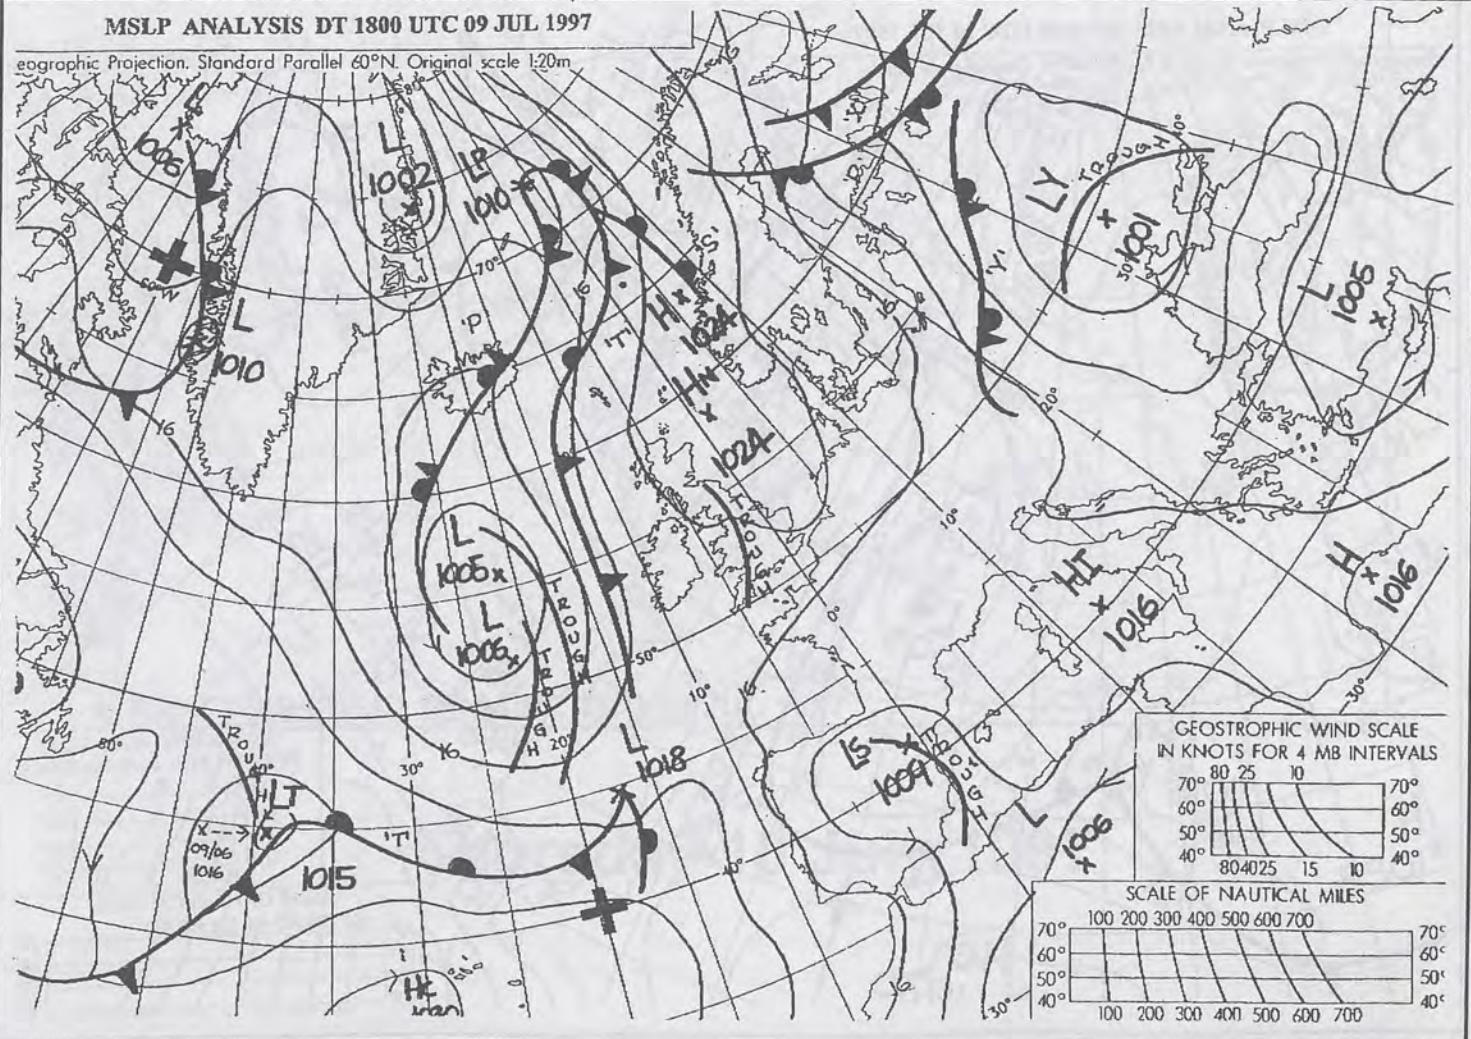 MSLP ANALYSIS DT 1800 UTC 09 JUL 1997
eographic Projection. Standard Parallel 60°N. Original scale 1:20m
80°
L
1006
L
1002
LP
1010
60°W
70°
'S'
L
1010
'P'
16
16
'T'
H
1024
HN
1024
16
'Y'
LY
TROUGH
40°
1001
30°
L
1005
20°
10°
0°
L
1005
L
1006
TROUGH
TROUGH
TROUGH
HI
1016
H
1016
30°
50°
10°
16
20°
16
30°
TROUGH
50°
40°
LT
09/06
1016
1015
'T'
L
1018
40°
LS
1009
TROUGH
L
1006
16
30°
HC
1030
GEOSTROPHIC WIND SCALE
IN KNOTS FOR 4 MB INTERVALS
80 25 10
70° 70°
60° 60°
50° 50°
40° 40°
80 40 25 15 10
SCALE OF NAUTICAL MILES
100 200 300 400 500 600 700
70° 70°
60° 60°
50° 50°
40° 40°
100 200 300 400 500 600 700